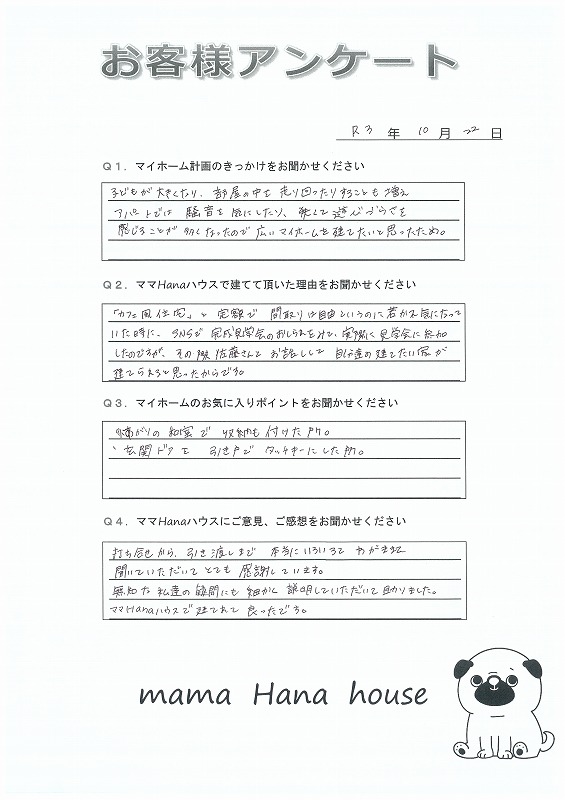 お客様アンケート
R3 年 10 月 22 日
Q1．マイホーム計画のきっかけをお聞かせください
子どもが大きくなり、部屋の中を走り回ったりすることも増え
アパートでは騒音を気にしたり、狭くて遊びづらさを
感じることが多くなったので広いマイホームを建てたいと思ったため。
Q2．ママHanaハウスで建てて頂いた理由をお聞かせください
「カフェ風住宅」と定額で 間取りは自由というのに惹かれ気になって
いた時に、SNSで完成見学会のおしらせをみて、実際に見学会に参加
したのですが、その際佐藤さんと お話しして 自分達の建てたい家が
建てられると思ったからです。
Q3．マイホームのお気に入りポイントをお聞かせください
小あがりの和室で 収納も付けた所。
玄関ドアを 引き戸で タッチキーにした所。
Q4．ママHanaハウスにご意見、ご感想をお聞かせください
打ち合せから、引き渡しまで 本当にいろいろと わがままを
聞いていただいてとても 感謝しています。
無知な私達の疑問にも細かく 説明していただいて助かりました。
ママHanaハウスで建てれて 良ったです。
mama Hana house